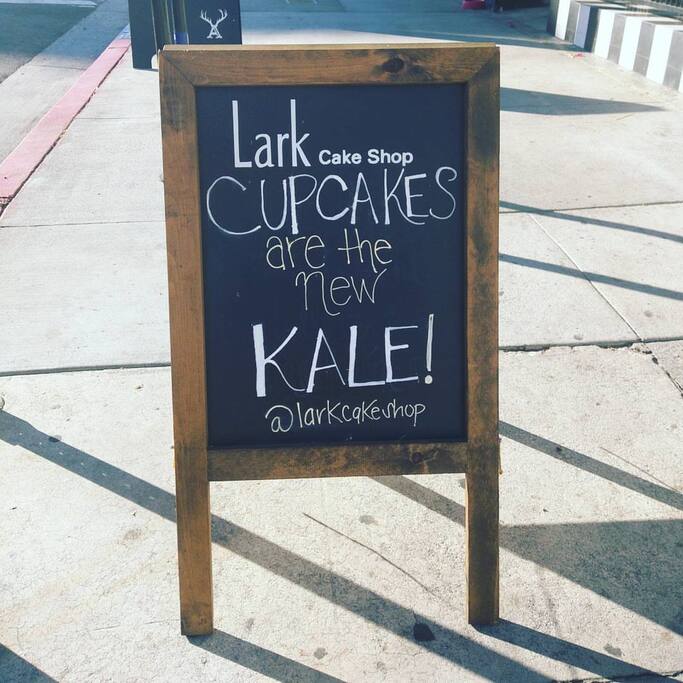 Lark Cake Shop
CUPCAKES
are the
new
KALE!
@larkcakeshop